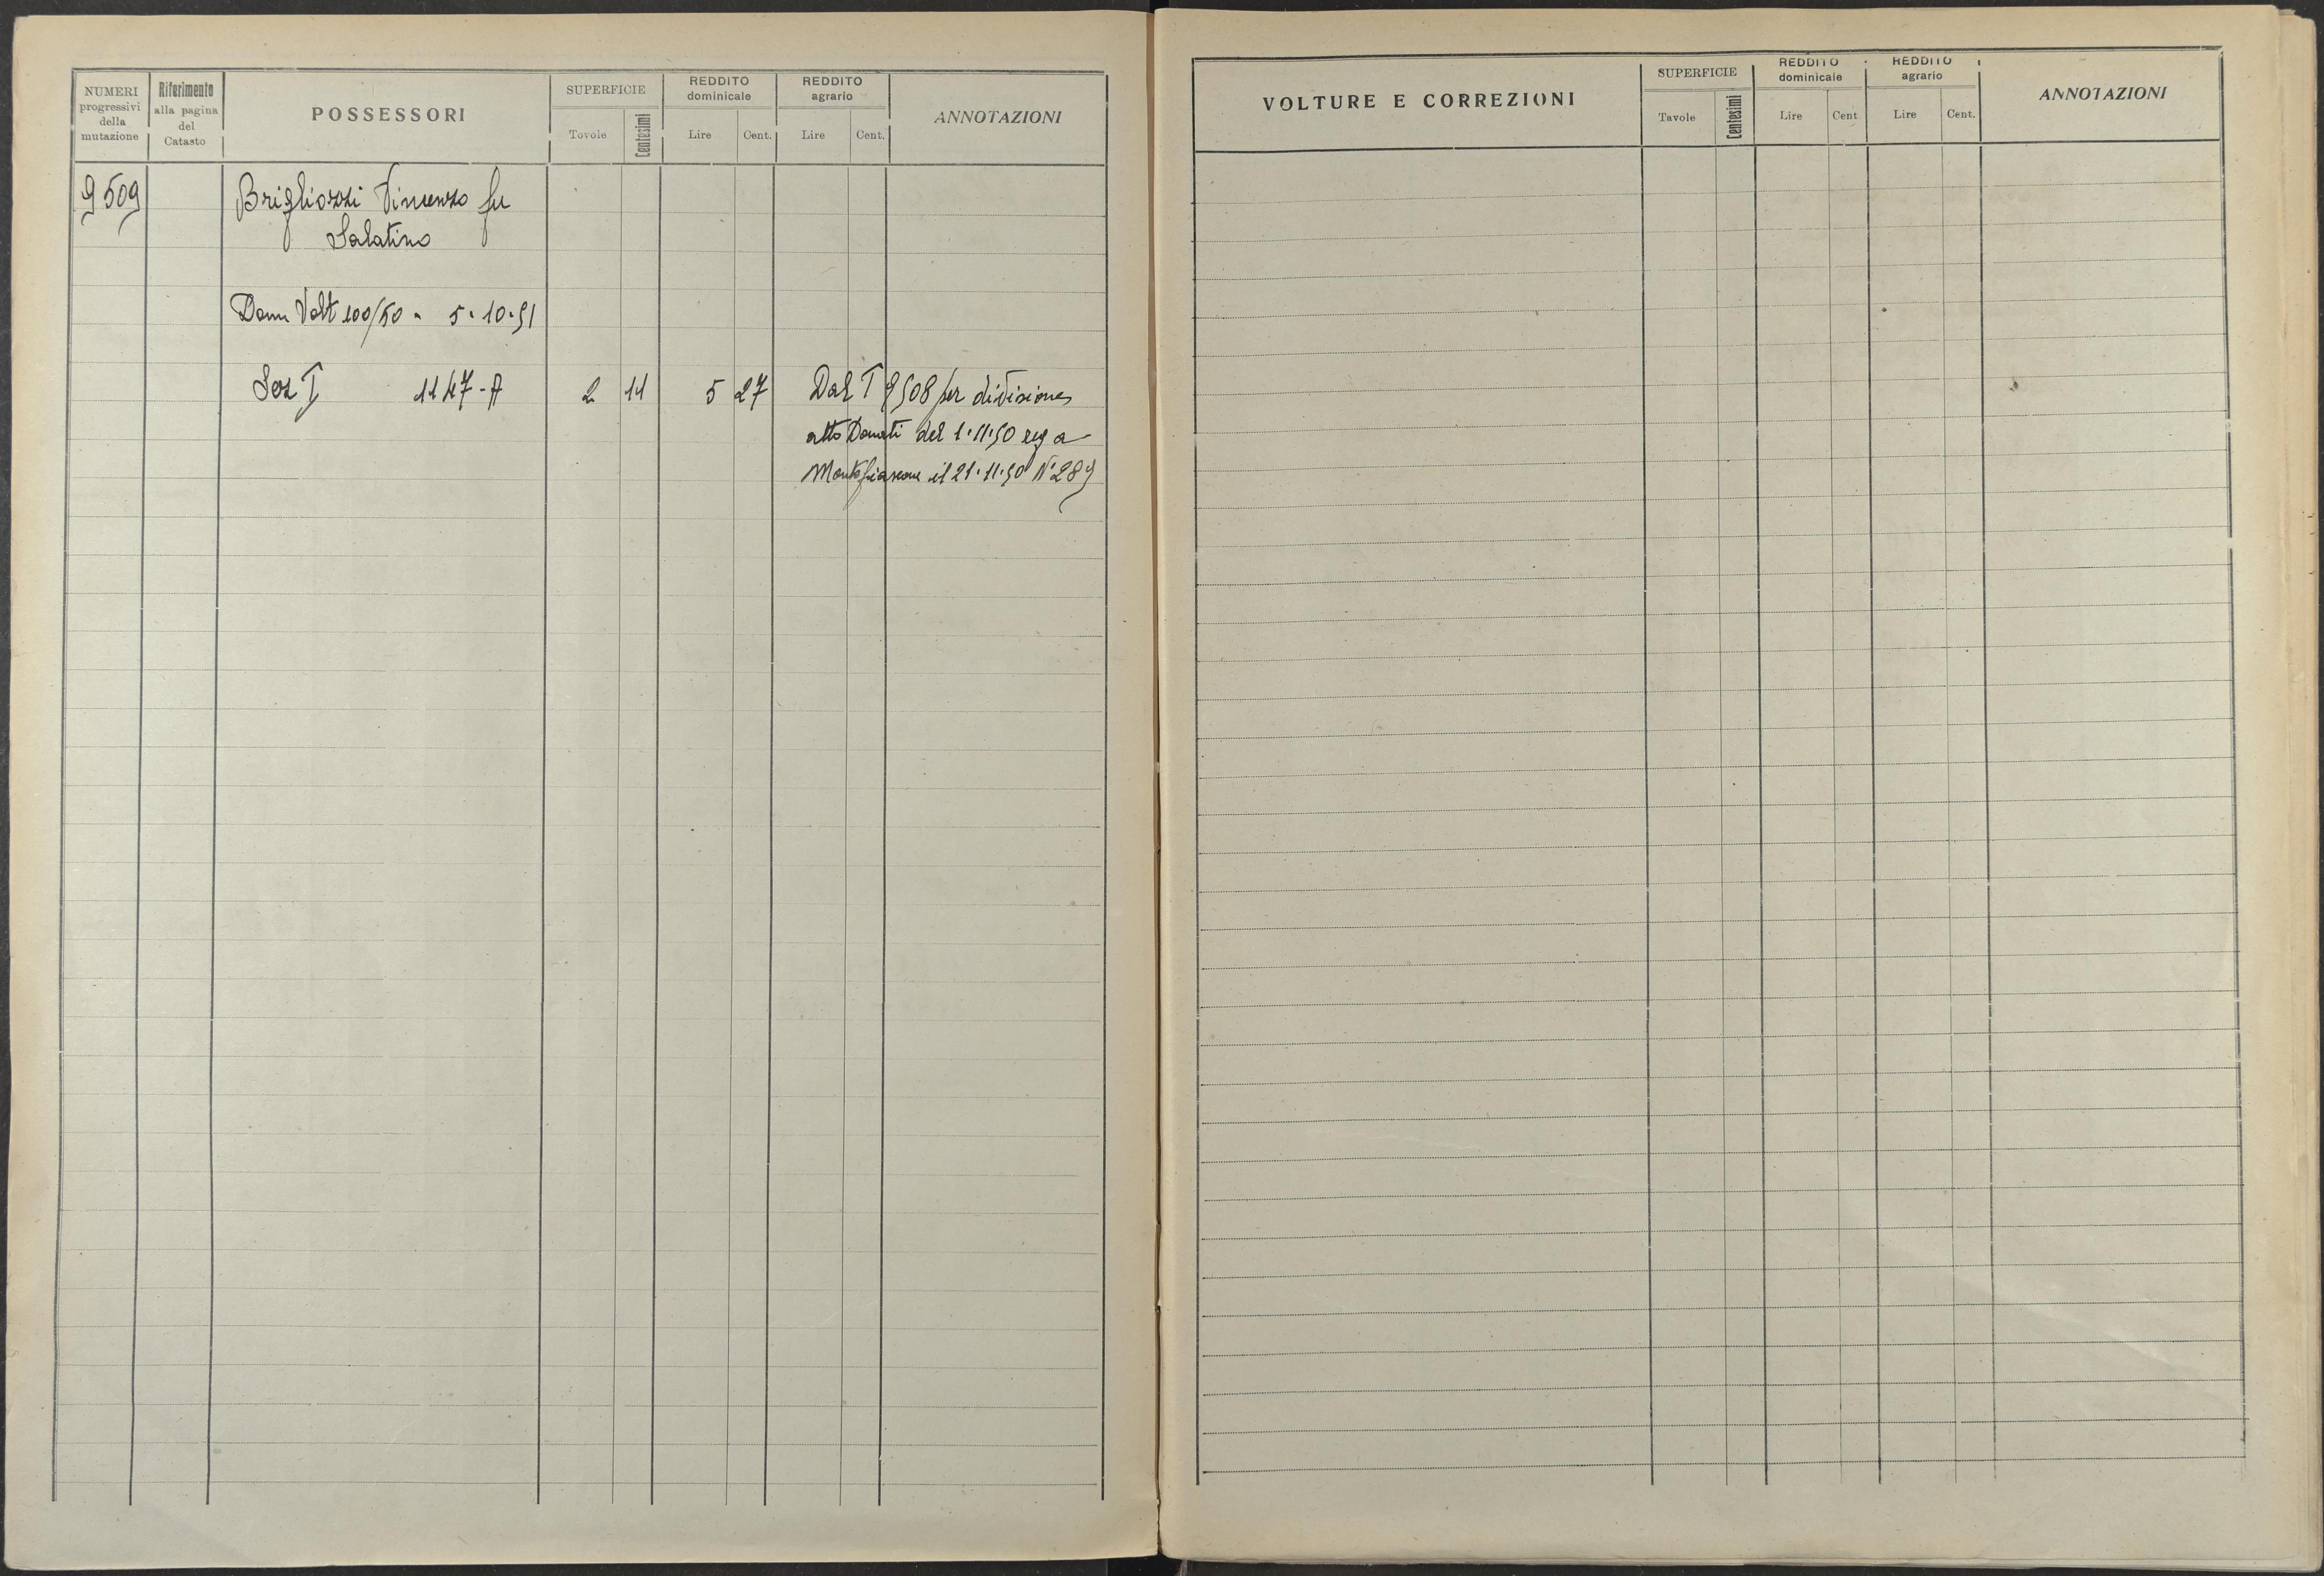 NUMERI
progressivi
della
mutazione
Riferimento
alla pagina
del
Catasto
POSSESSORI
SUPERFICIE
Tovole
Centesimi
REDDITO
dominicale
Lire
Cent.
REDDITO
agrario
Lire
Cent.
ANNOTAZIONI
9509
Brigliozzi Vincenzo fu
Salatino
Dom Volt 100/50 - 5.10.51
Sez I 1147-A 2 11 5 27 Dal T 9508 per divisione
atto Donati del 1.11.50 reg a
Montefiascone il 21.11.50 N° 289
VOLTURE E CORREZIONI
SUPERFICIE
Tavole
Centesimi
REDDITO
dominicale
Lire
Cent
REDDITO
agrario
Lire
Cent.
ANNOTAZIONI